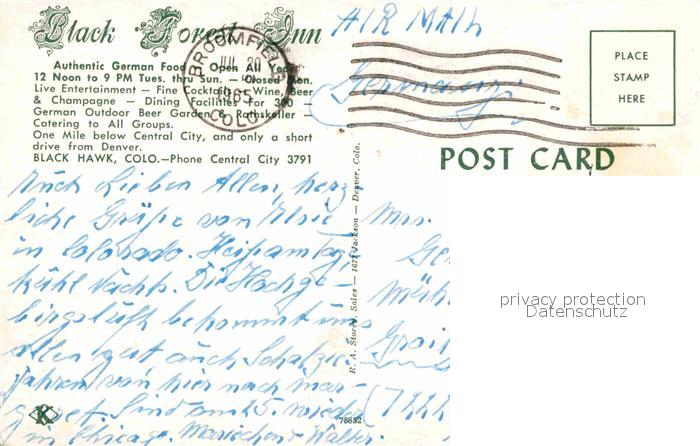 Black Forest Inn
Authentic German Food — Open All Year
12 Noon to 9 PM Tues. thru Sun. — Closed Mon.
Live Entertainment — Fine Cocktails — Wine, Beer
& Champagne — Dining Facilities For 300 —
German Outdoor Beer Garden & Rathskeller —
Catering to All Groups.
One Mile below Central City, and only a short
drive from Denver.
BLACK HAWK, COLO.—Phone Central City 3791
BROOMFIELD
JUL 20
1965
COLO.
AIR MAIL
Germany
PLACE
STAMP
HERE
POST CARD
Euch Lieben Allen, herz-
liche Grüße von
in Colorado. Heiß am Tag,
kühl Nachts. Die Hochge-
birgsluft bekommt uns
allen gut auch
fahren von hier nach
Sind am 25. wieder
in Chicago. Mariechen & Walter.
R. A. Storer, Sales — 1677 Jackson — Denver, Colo.
Mrs.
Ge
(7444
K
76832
privacy protection
Datenschutz